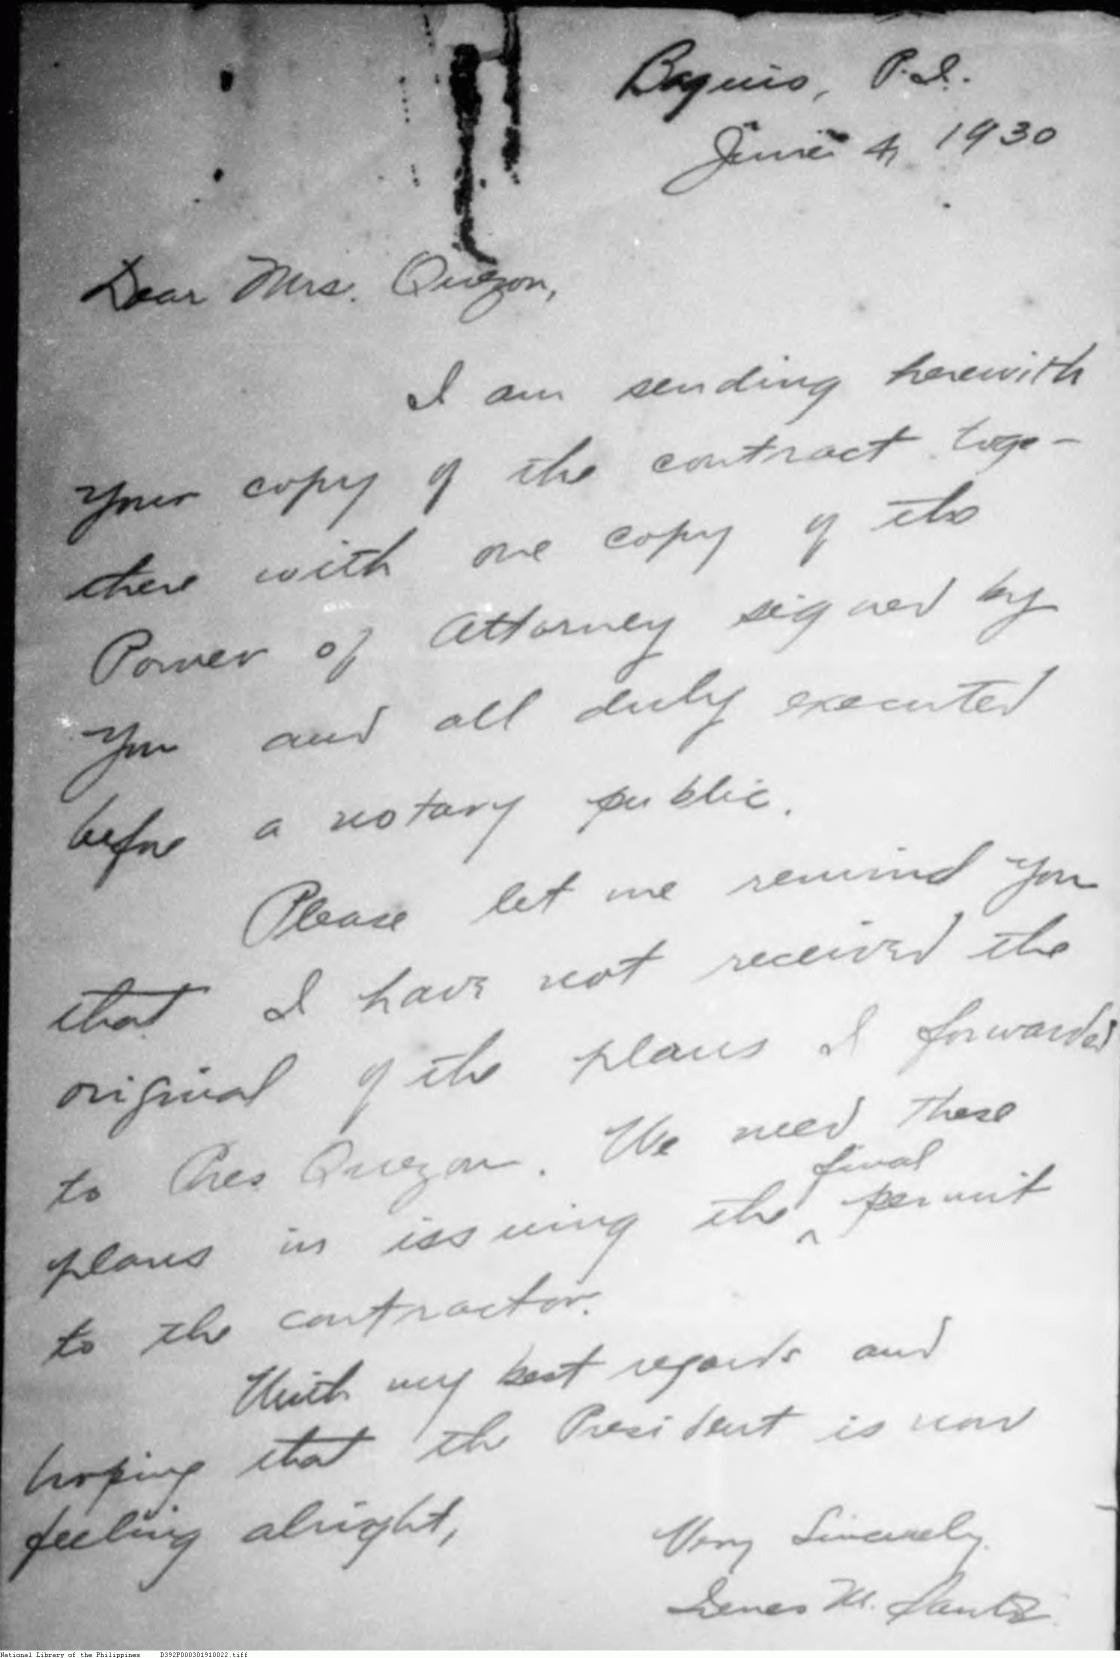 Baguio, P.I.
June 4, 1930
Dear Mrs. Quezon,
I am sending herewith
your copy of the contract toge-
there with one copy of the
Power of Attorney signed by
you and all duly executed
before a notary public.
Please let me remind you
that I have not received the
original of the plans I forwarded
to Pres. Quezon. We need these
final
plans in issuing the ^ permit
to the contractor.
With my best regards and
hoping that the President is now
feeling alright,
Very Sincerely,
M.
National Library of the Philippines D392P000301910022.tiff